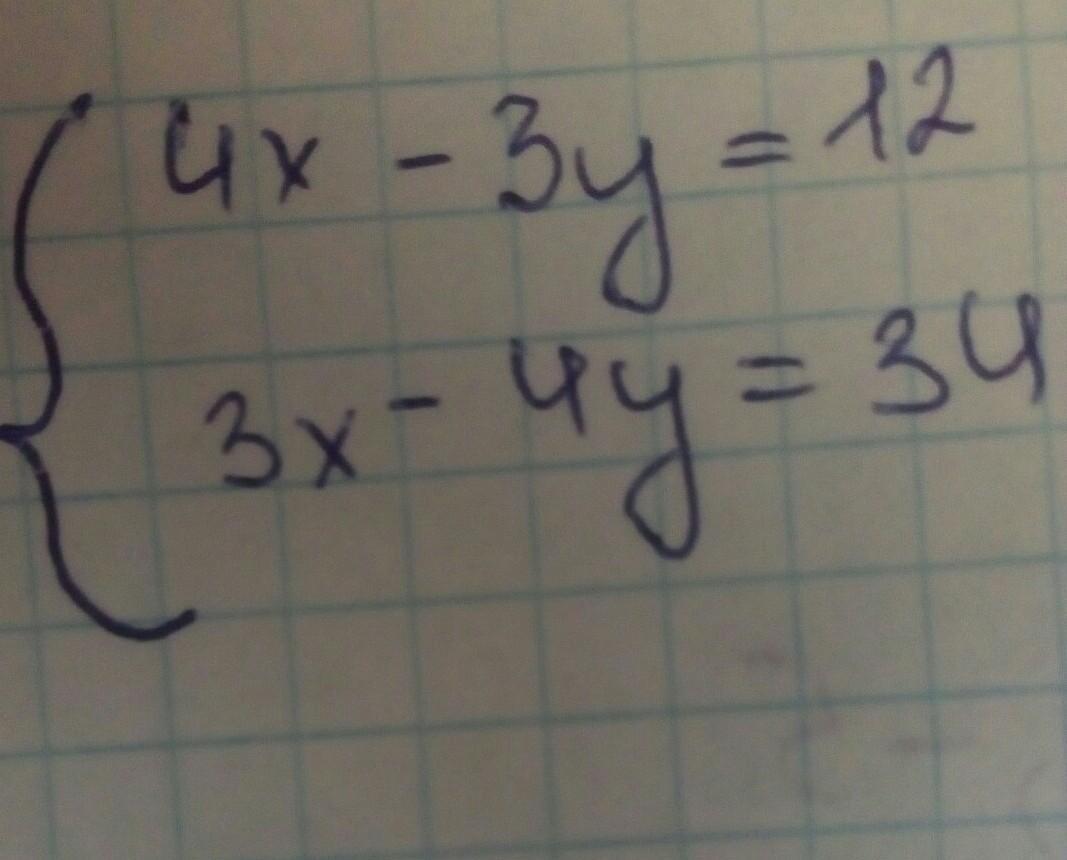 4x - 3y = 12
3x - 4y = 34